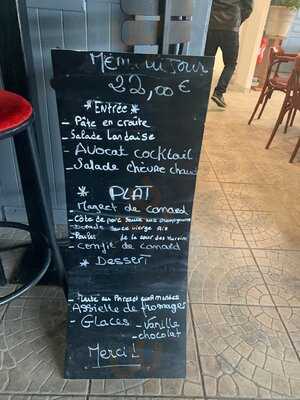 Menu du Jour
22,00€
*Entrée*
- Pâte en croûte
- Salade Landaise
- Avocat cocktail
- Salade chèvre chaud
* PLAT
- Magret de canard
- Côte de porc sauce aux champignons
sauce vierge
- de la cour des
- confit de canard
* DESSERT
- aux Amandes
Assiette de fromages
- Glaces - Vanille
- chocolat
Merci !